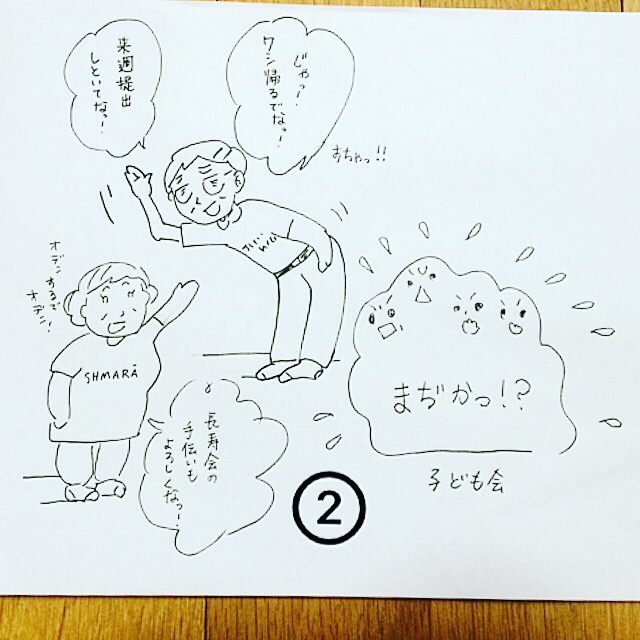 じゃっ!
ワシ帰るでなっ!
来週提出
しといてなっ!
おちゃっ!!
オデン
するで
オデン!
SHMARA
長寿会の
手伝いも
よろしくなっ!
まぢかっ!?
子ども会
②